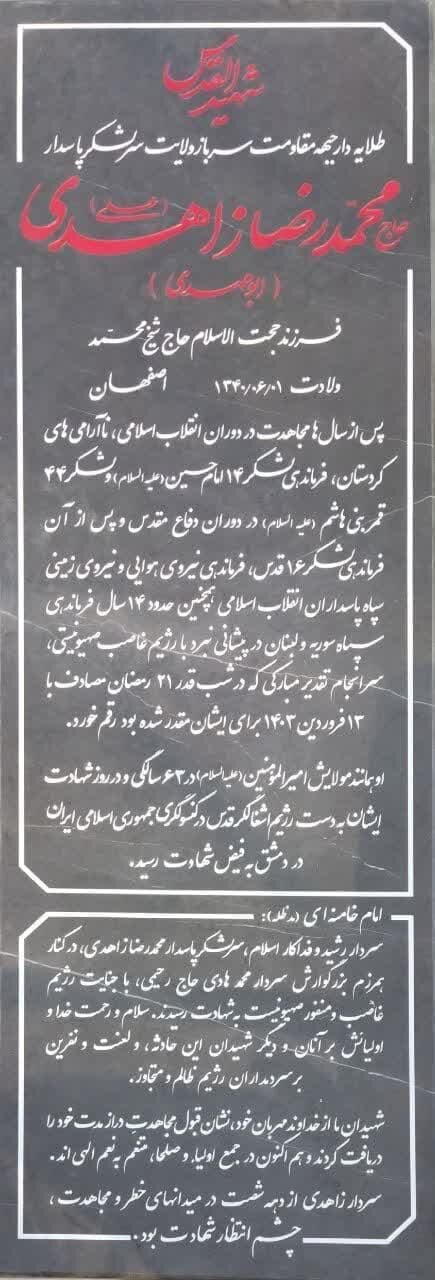 شهید القدس
طلایه دار جبهه مقاومت سرباز ولایت سرلشکر پاسدار
حاج محمدرضا زاهدی (علی)
(ابومهدی)
فرزند حجت الاسلام حاج شیخ محمد
ولادت ۱۳۴۰/۰۶/۰۱ اصفهان
پس از سال ها مجاهدت در دوران انقلاب اسلامی، ناآرامی های
کردستان، فرماندهی لشکر ۱۴ امام حسین (علیه السلام) و لشکر ۴۴
قمر بنی هاشم (علیه السلام) در دوران دفاع مقدس و پس از آن
فرماندهی لشکر ۱۶ قدس، فرماندهی نیروی هوایی و نیروی زمینی
سپاه پاسداران انقلاب اسلامی همچنین حدود ۱۴ سال فرماندهی
سپاه سوریه و لبنان در پیشانی نبرد با رژیم غاصب صهیونیستی،
سرانجام تقدیر مبارکی که در شب قدر ۲۱ رمضان مصادف با
۱۳ فروردین ۱۴۰۳ برای ایشان مقدر شده بود رقم خورد.
او همانند مولایش امیرالمؤمنین (علیه السلام) در ۶۳ سالگی و در روز شهادت
ایشان به دست رژیم اشغالگر قدس در کنسولگری جمهوری اسلامی ایران
در دمشق به فیض شهادت رسید.
امام خامنه ای (مدظله):
سردار رشید و فداکار اسلام، سرلشکر پاسدار محمدرضا زاهدی، در کنار
همرزم بزرگوارش سردار محمد هادی حاج رحیمی، با جنایت رژیم
غاصب و منفور صهیونیست به شهادت رسیدند. سلام و رحمت خدا و
اولیائش بر آنان و دیگر شهیدان این حادثه، و لعنت و نفرین
بر سردمداران رژیم ظالم و متجاوز.
شهیدان ما از خداوند مهربان خود، نشان قبول مجاهدت دراز مدت خود را
دریافت کردند و هم اکنون در جمع اولیاء و صلحا، متنعم به نعم الهی اند.
سردار زاهدی از دهه شصت در میدانهای خطر و مجاهدت،
چشم انتظار شهادت بود.